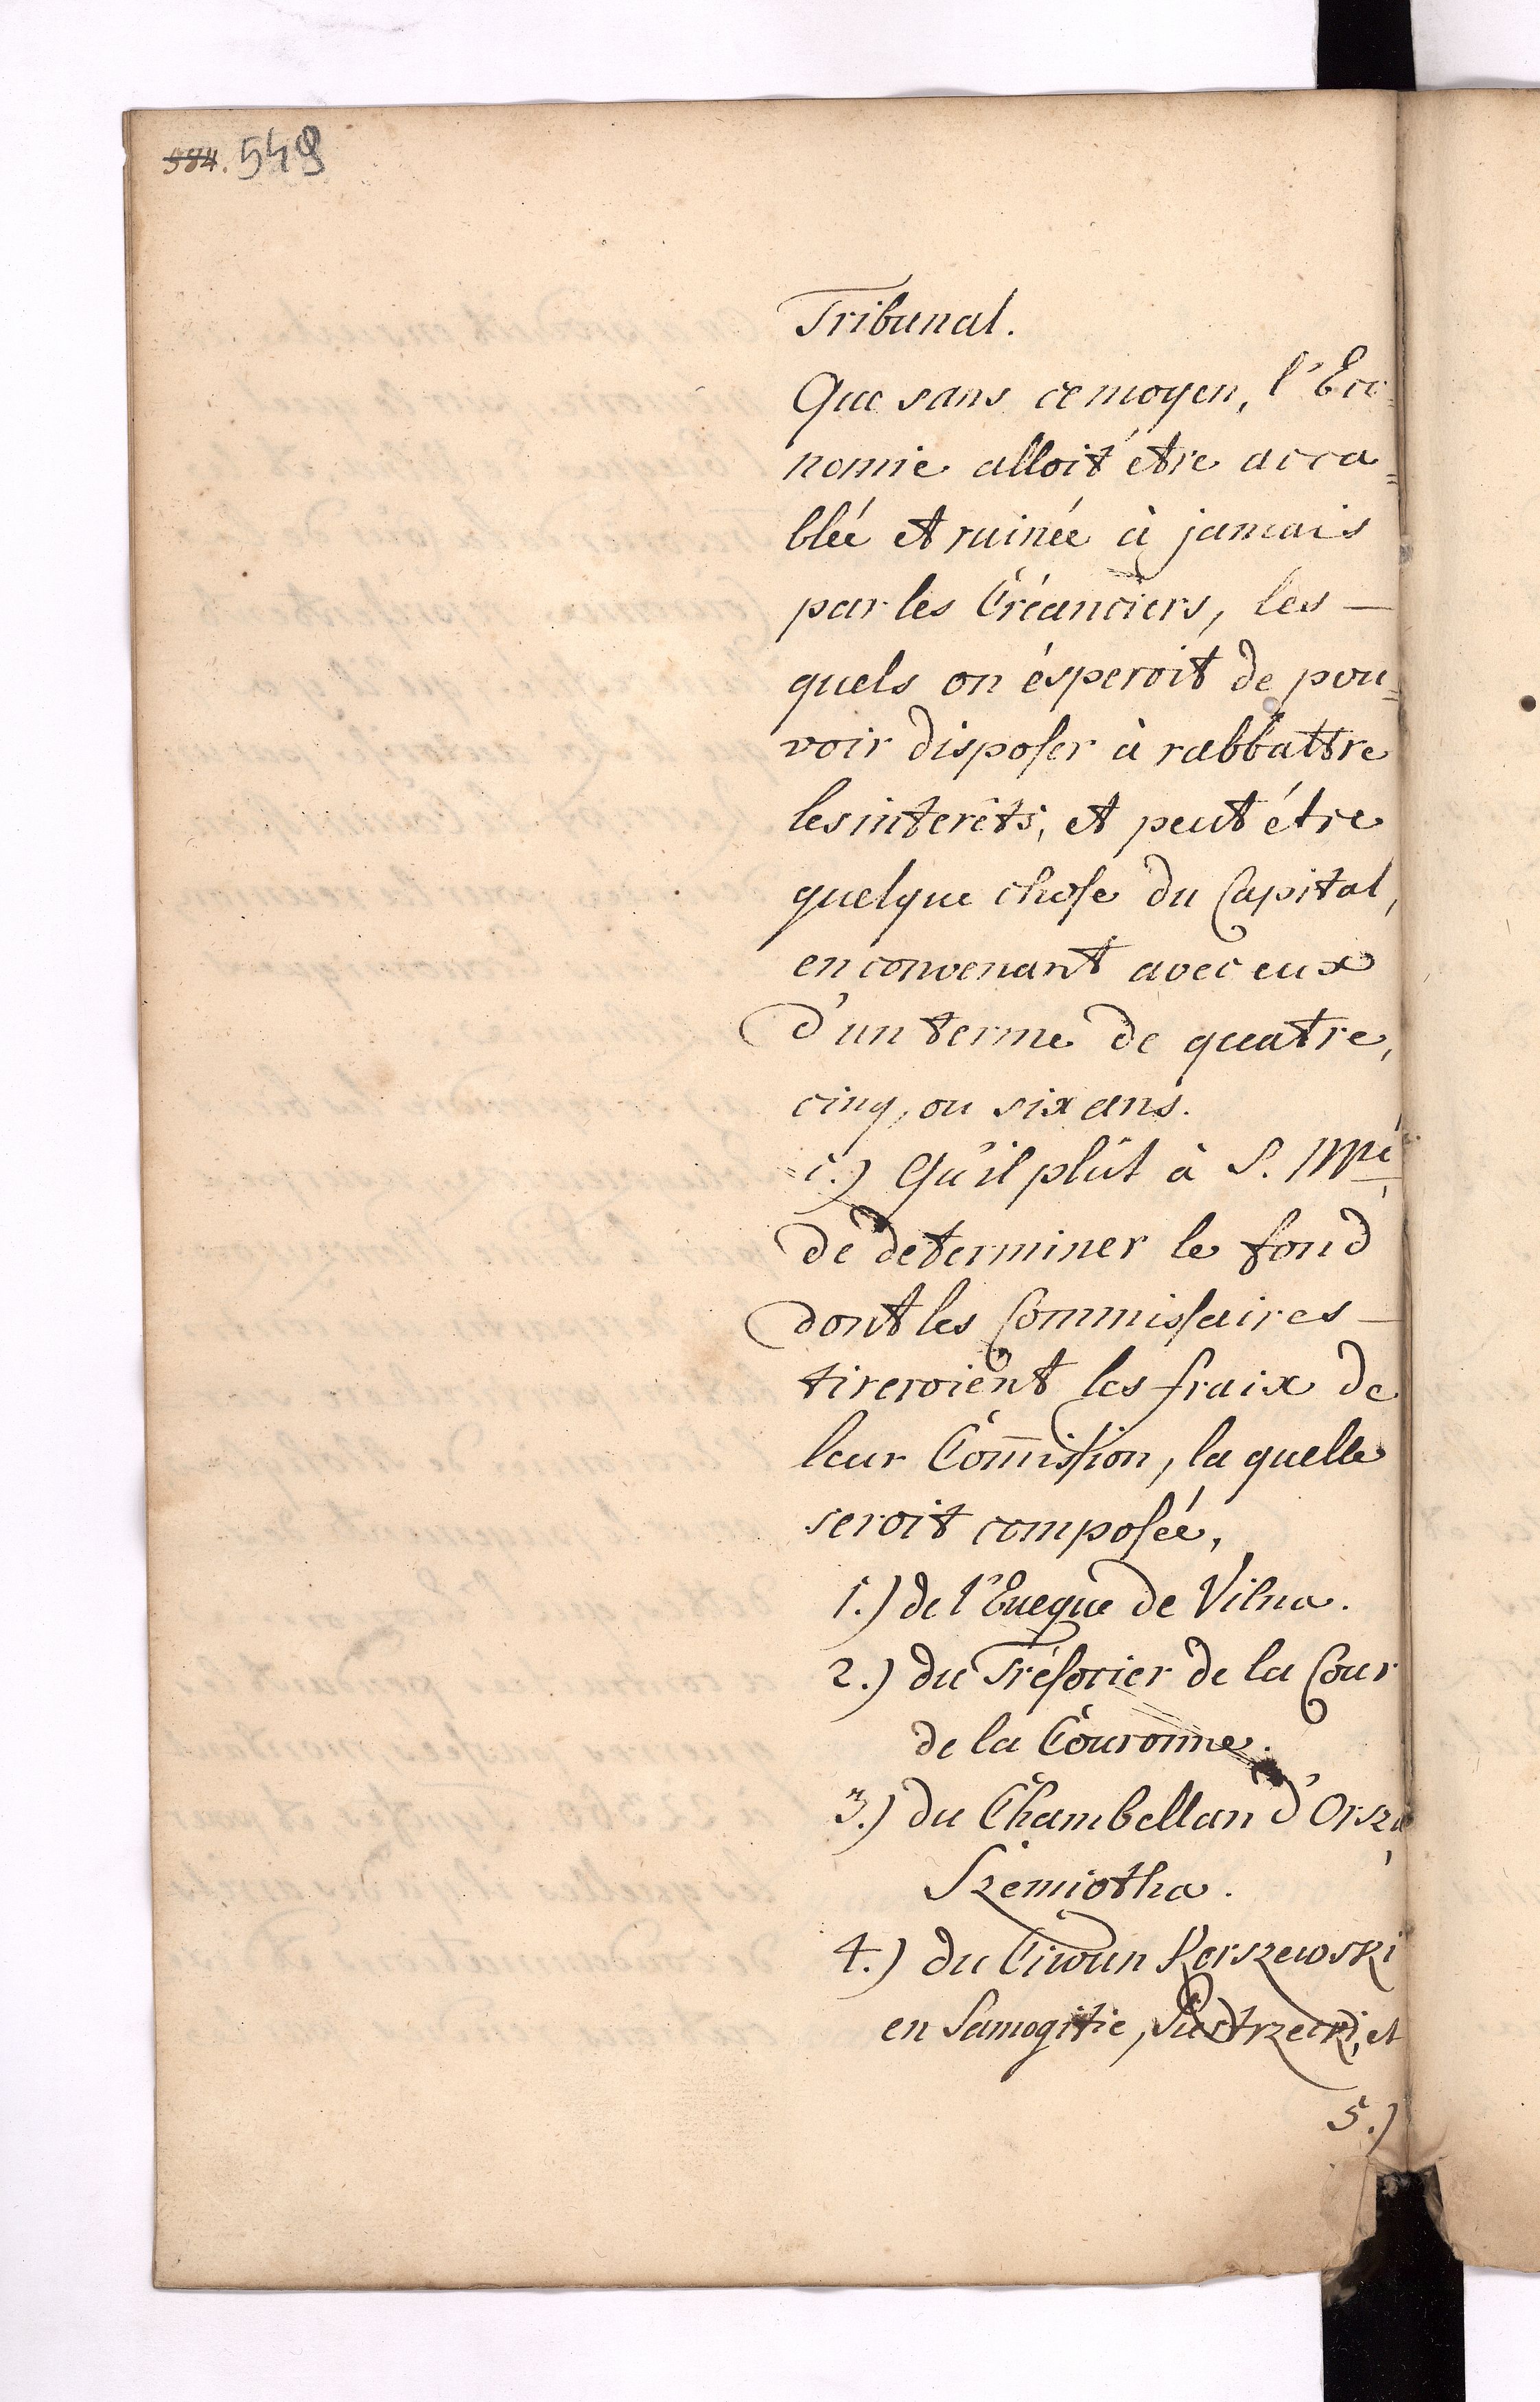 584. 549
Tribunal.
Que sans ce moyen, l'Eco
nomie alloit être acca=
blée et ruinée à jamais
par les Créanciers, les —
quels on ésperoit de pou=
voir disposer à rabbattre
les interêts, et peut étre
quelque chose du Capital,
en convenant avec eux
d'un terme de quatre,
cinq, ou six ans.
c.) Qu'il plût à S. Mté
de determiner le fond
dont les Commissaires —
tireroient les fraix de
leur Com̄ission, la quelle
seroit composée,
1.) de l'Eueque de Vilna.
2.) du Trésorier de la Cour
de la Couronne.
3.) du Chambellan d'Orsza
Szemiotha.
4.) du Ciwun Kerszewski
en Samogitie, et
5.)